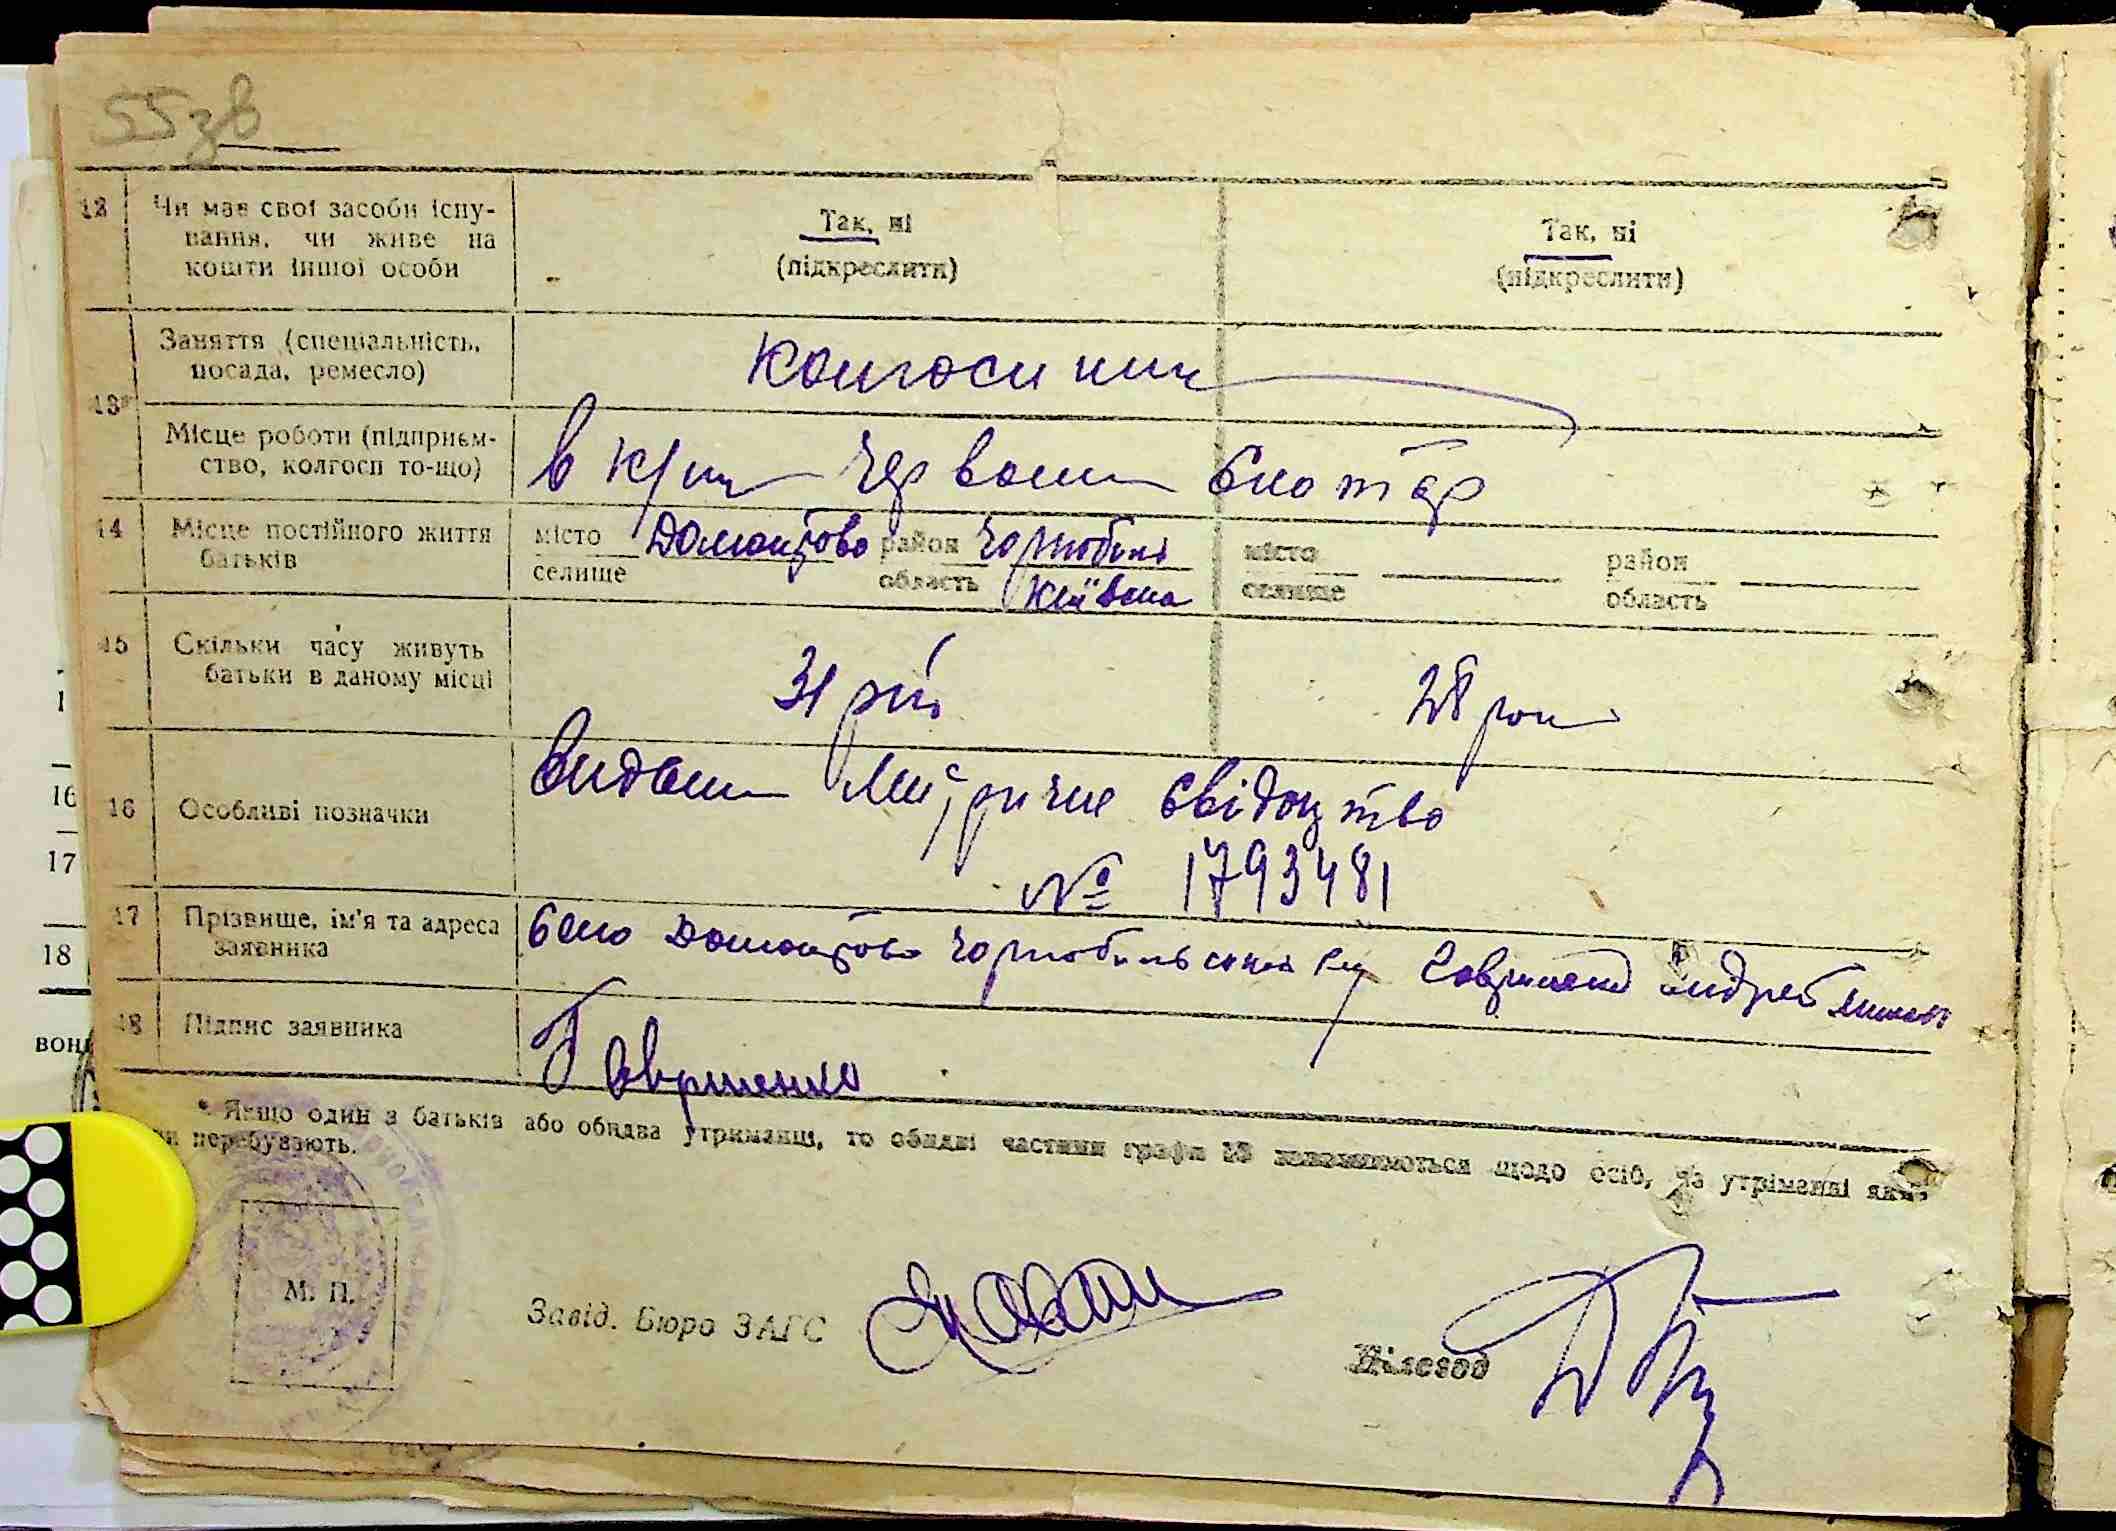 55зв
12 Чи має свої засоби існу-
вання, чи живе на
кошти іншої особи
Так, ні
(підкреслити)
Так, ні
(підкреслити)
13*
Заняття (спеціальність,
посада, ремесло)
колгоспник
Місце роботи (підприєм-
ство, колгосп то-що)
в к/г Червоний
14 Місце постійного життя
батьків
місто
селище
Домонтово
район
область
Чорнобил
Київська
місто
селище
район
область
15 Скільки часу живуть
батьки в даному місці
31 рік
28 рок
16 Особливі позначки
Видано Метричне свідоцтво
№ 1793481
17 Прізвище, ім'я та адреса
заявника
село Домонтово Чорнобильський Гавриленко Андрей
18 Підпис заявника
Гавриленко
* Якщо один з батьків або обидва утриманці, то обидві частини графи 13 заповнюються щодо осіб, на утриманні яких
ни перебувають.
М. П.
Завід. Бюро ЗАГС
Діловод
16
17
18
вони